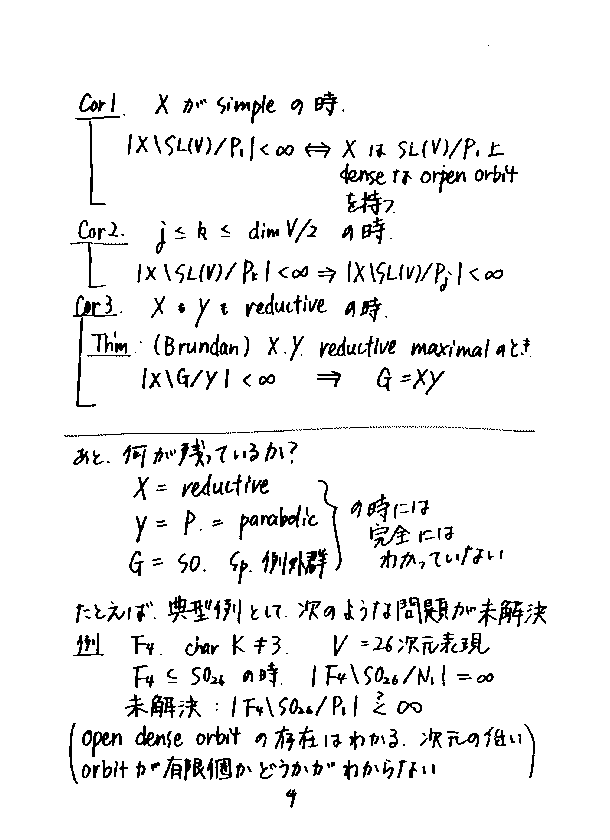 Cor 1. X が simple の時.
|X\SL(V)/P₁| < ∞ ⇔ X は SL(V)/P₁ 上
dense な orpen orbit
を持つ
Cor 2. j ≤ k ≤ dim V/2 の時.
|X\SL(V)/Pₖ| < ∞ ⇒ |X\SL(V)/Pⱼ| < ∞
Cor 3. X も Y も reductive の時.
Thm. (Brundan) X, Y reductive maximal のとき
|X\G/Y| < ∞ ⇒ G = XY
あと、何が残っているか?
X = reductive
Y = P. = parabolic
G = SO. Sp. 例外群
の時には
完全には
わかっていない
たとえば、典型例として、次のような問題が未解決
例 F₄. char K ≠ 3. V = 26次元表現
F₄ ⊆ SO₂₆ の時. |F₄\SO₂₆/N₁| = ∞
未解決 : |F₄\SO₂₆/P₁| <? ∞
(open dense orbit の存在はわかる. 次元の低い
orbit が有限個かどうかがわからない)
4